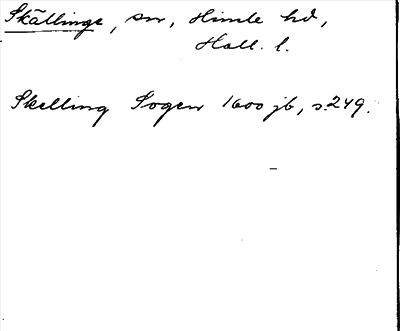 Skällinge, sn, Himle hd,
Hall. l.
Skelling Sogen 1600 jb, s. 249.